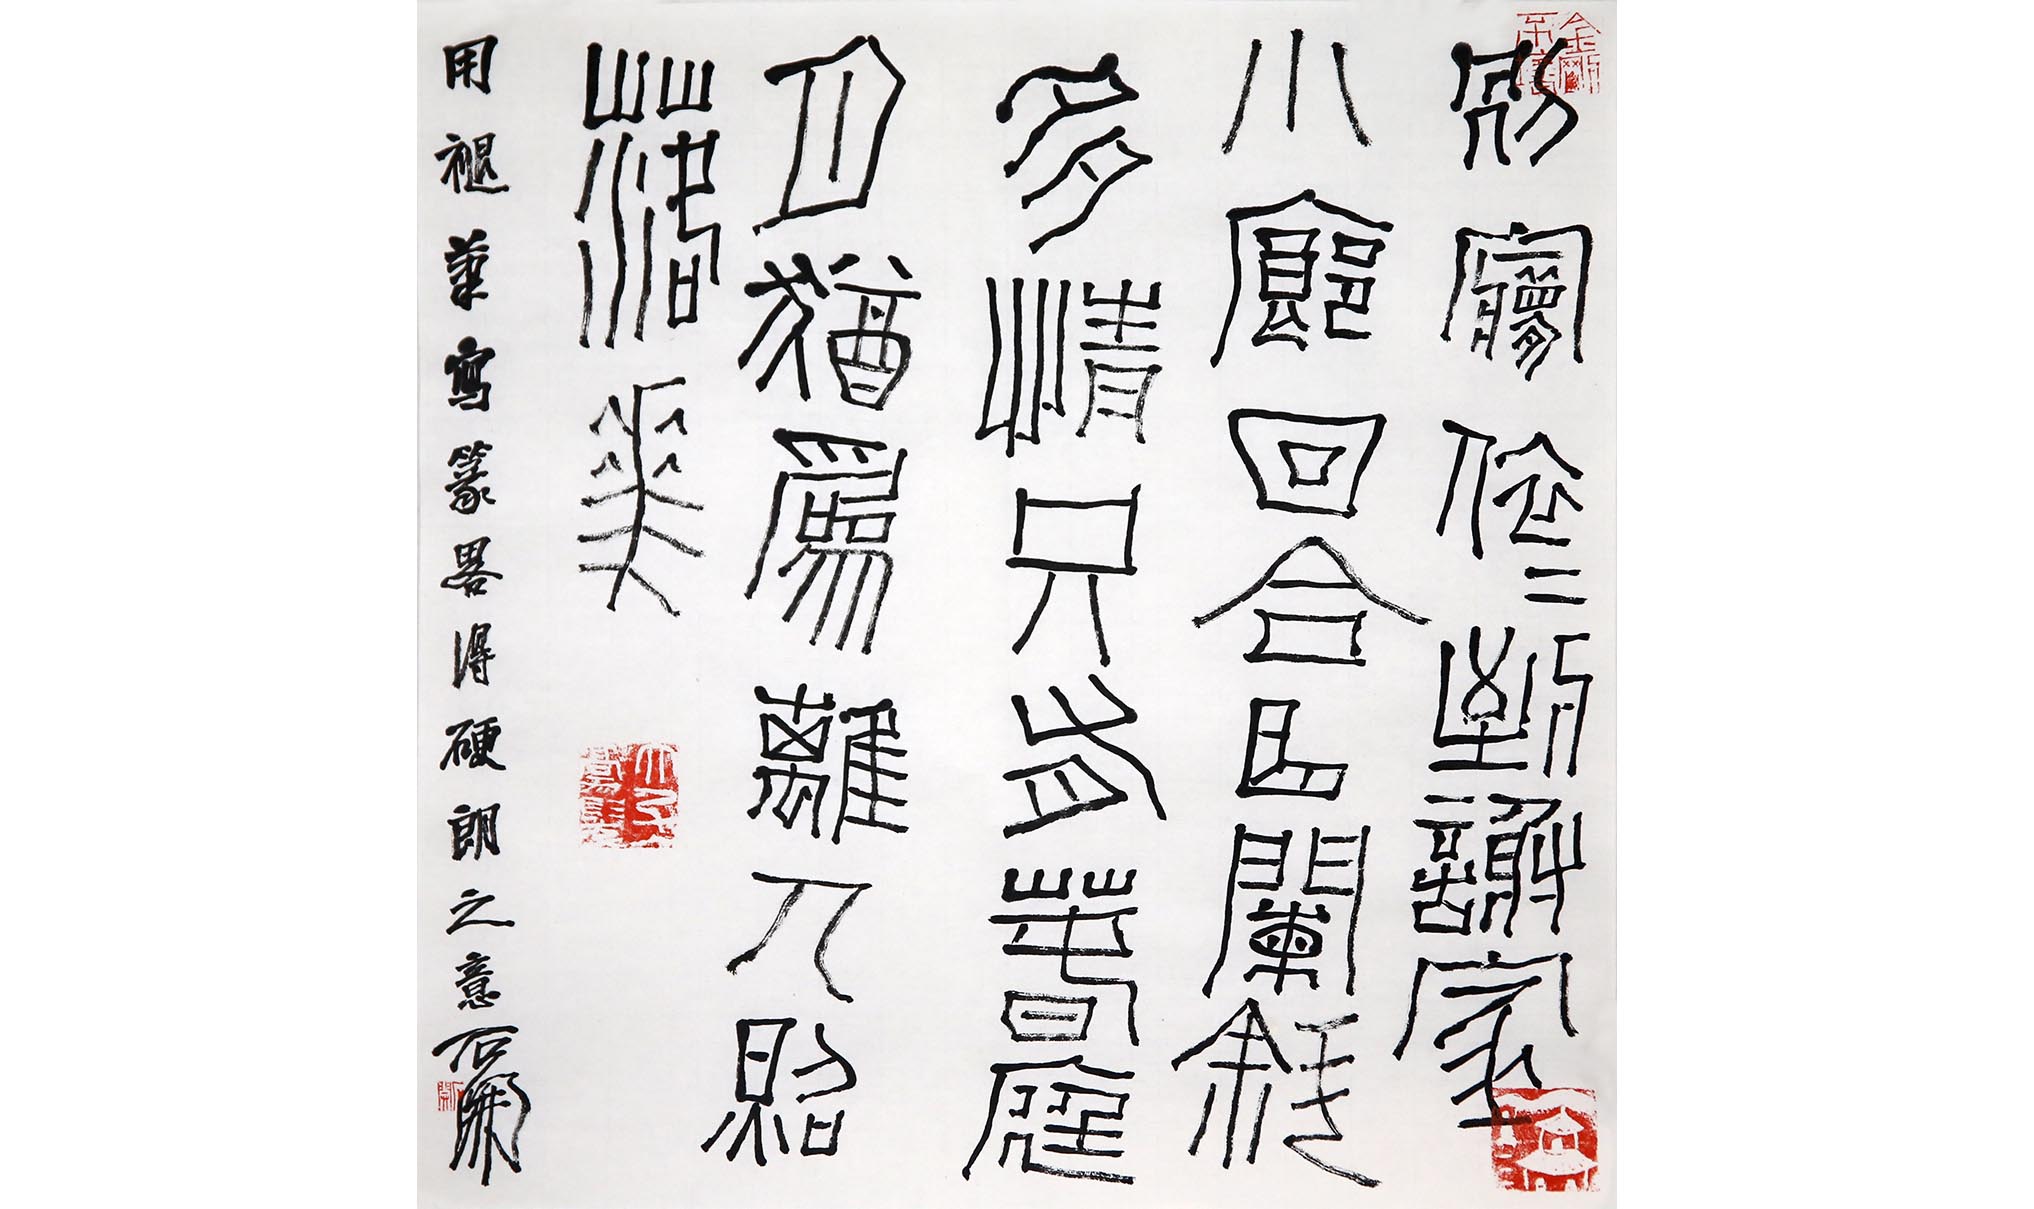 別夢依〻到謝家
小廊回合曲闌斜
多情只有春庭
月猶爲離人照
落花
用褪筆寫篆畧得硬朗之意 石開